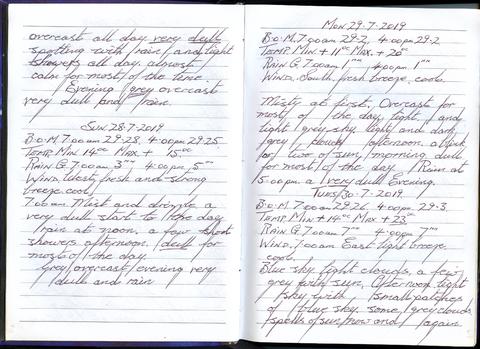 overcast all day very dull
spotting with rain and light
showers all day almost
calm for most of the time.
Evening grey overcast
very dull and rain.
SUN. 28-7-2019
B.O.M. 7.00am 29.28. 4.00pm 29.25
TEMP. MIN 14°C MAX + 15°C
RAIN G. 7.00am 3"" 4.00pm 5""
WIND. West, fresh and strong
breeze. cool
7.00am Mist and drizzle a
very dull start to the day
rain at noon. a few short
showers afternoon. dull for
most of the day.
Grey overcast evening very
dull and rain
MON 29-7-2019
B.O.M. 7.00am 29.2. 4.00pm 29.2
TEMP. MIN + 11°C MAX. + 20°C
RAIN G. 7.00am 1"" 4.00pm 1""
WIND. South, fresh breeze. cool.
Misty at first. Overcast for
most of the day, light and
light grey sky, light and dark
grey clouds afternoon. a
for two of sun, morning dull
for most of the day. Rain at
5.00pm a very dull Evening.
TUES/30-7-2019.
B.O.M. 7.00am 29.26. 4.00pm 29.3.
TEMP. MIN + 14°C MAX + 23°C
RAIN G. 7.00am 7"" 4.00pm 7""
WIND. 7.00am East light breeze.
cool.
Blue sky light clouds, a few
grey with sun, Afternoon light
sky with small patches
of blue sky. some grey clouds
spells of sun now and again.